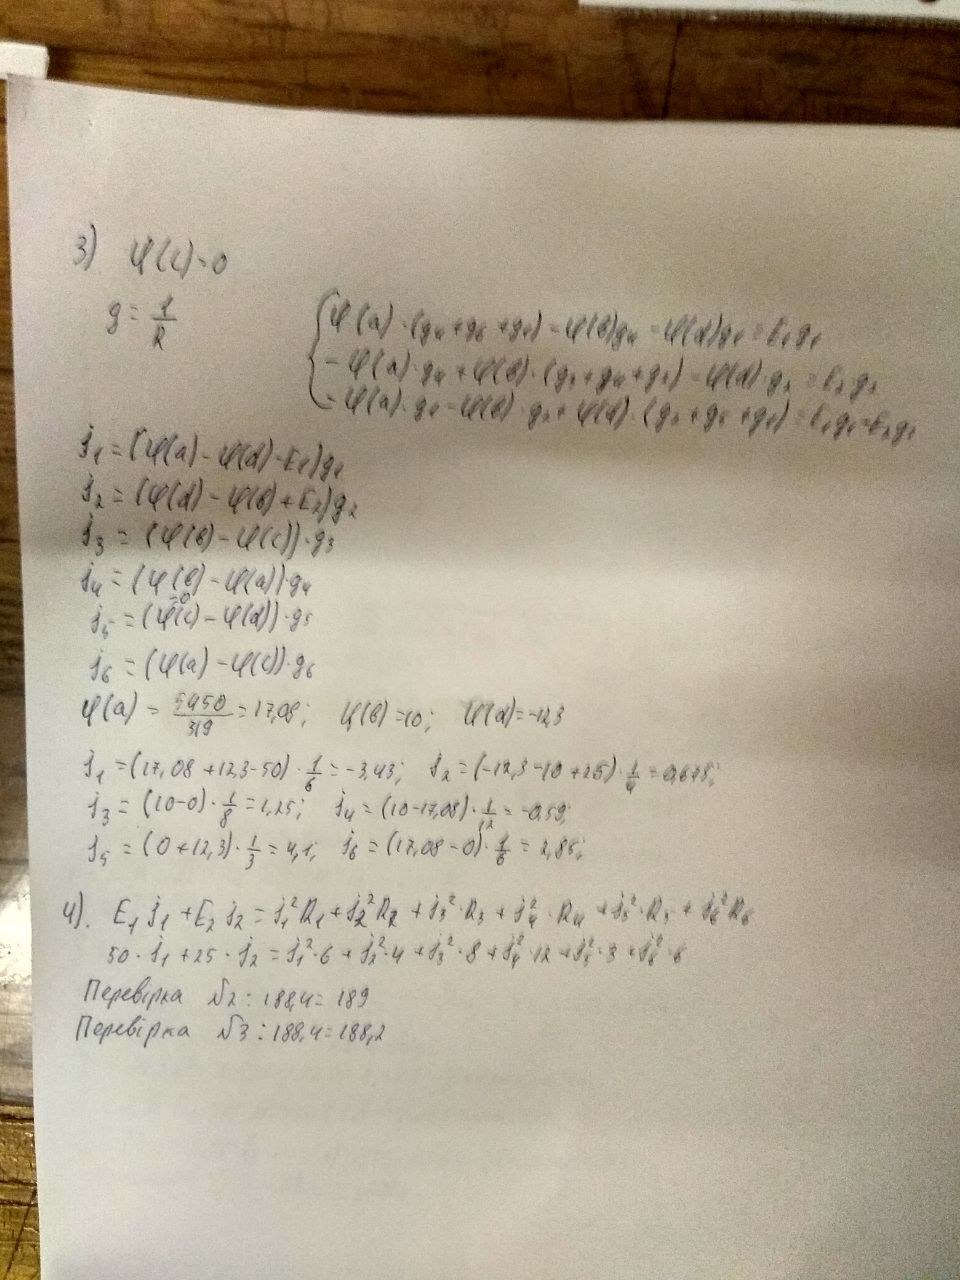 3) φ(c)=0
g = 1/R
φ(a)·(g4+g6+g1)-φ(b)g4-φ(d)g1=E1g1
-φ(a)·g4+φ(b)·(g3+g4+g2)-φ(d)·g2=E2g2
-φ(a)·g1-φ(b)·g2+φ(d)·(g2+g5+g1)=E1g1-E2g2
j1=(φ(a)-φ(d)-E1)g1
j2=(φ(d)-φ(b)+E2)g2
j3=(φ(b)-φ(c))·g3
j4=(φ(b)-φ(a))·g4
=0
j5=(φ(c)-φ(d))·g5
j6=(φ(a)-φ(c))·g6
φ(a)=5450/319=17,08; φ(b)=10; φ(d)=-12,3
j1=(17,08+12,3-50)·1/6=-3,43; j2=(-12,3-10+25)·1/4=0,675;
j3=(10-0)·1/8=1,25; j4=(10-17,08)·1/12=-0,59;
j5=(0+12,3)·1/3=4,1; j6=(17,08-0)·1/6=2,85;
4). E1j1+E2j2=j1²R1+j2²R2+j3²·R3+j4²·R4+j5²·R5+j6²R6
50·j1+25·j2=j1²·6+j2²·4+j3²·8+j4²·12+j5²·3+j6²·6
Перевірка №2: 188,4=189
Перевірка №3: 188,4=188,2